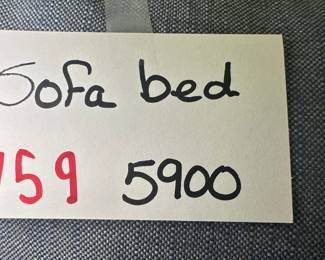 Sofa bed
159 5900